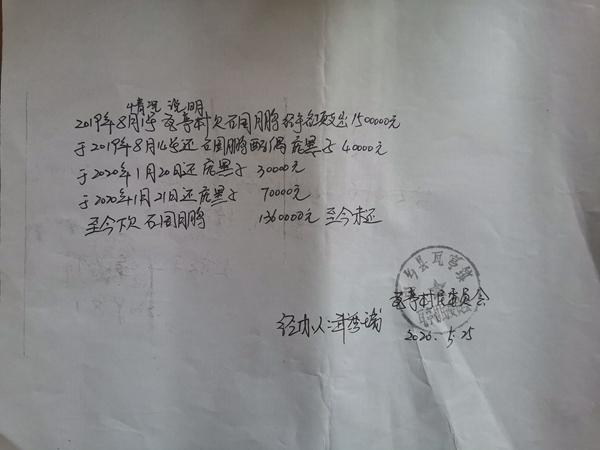 情况说明
2019年8月1号亭村欠石国月鹏经手各项支出1500000元
于2019年8月14号还石国鹏配偶庞黑子40000元
于2020年1月20日还庞黑子30000元
于2020年1月21日还庞黑子70000元
至今下欠石国月鹏1360000元至今未还
县瓦亭镇
亭村民委员会
经办人
2020.5.25